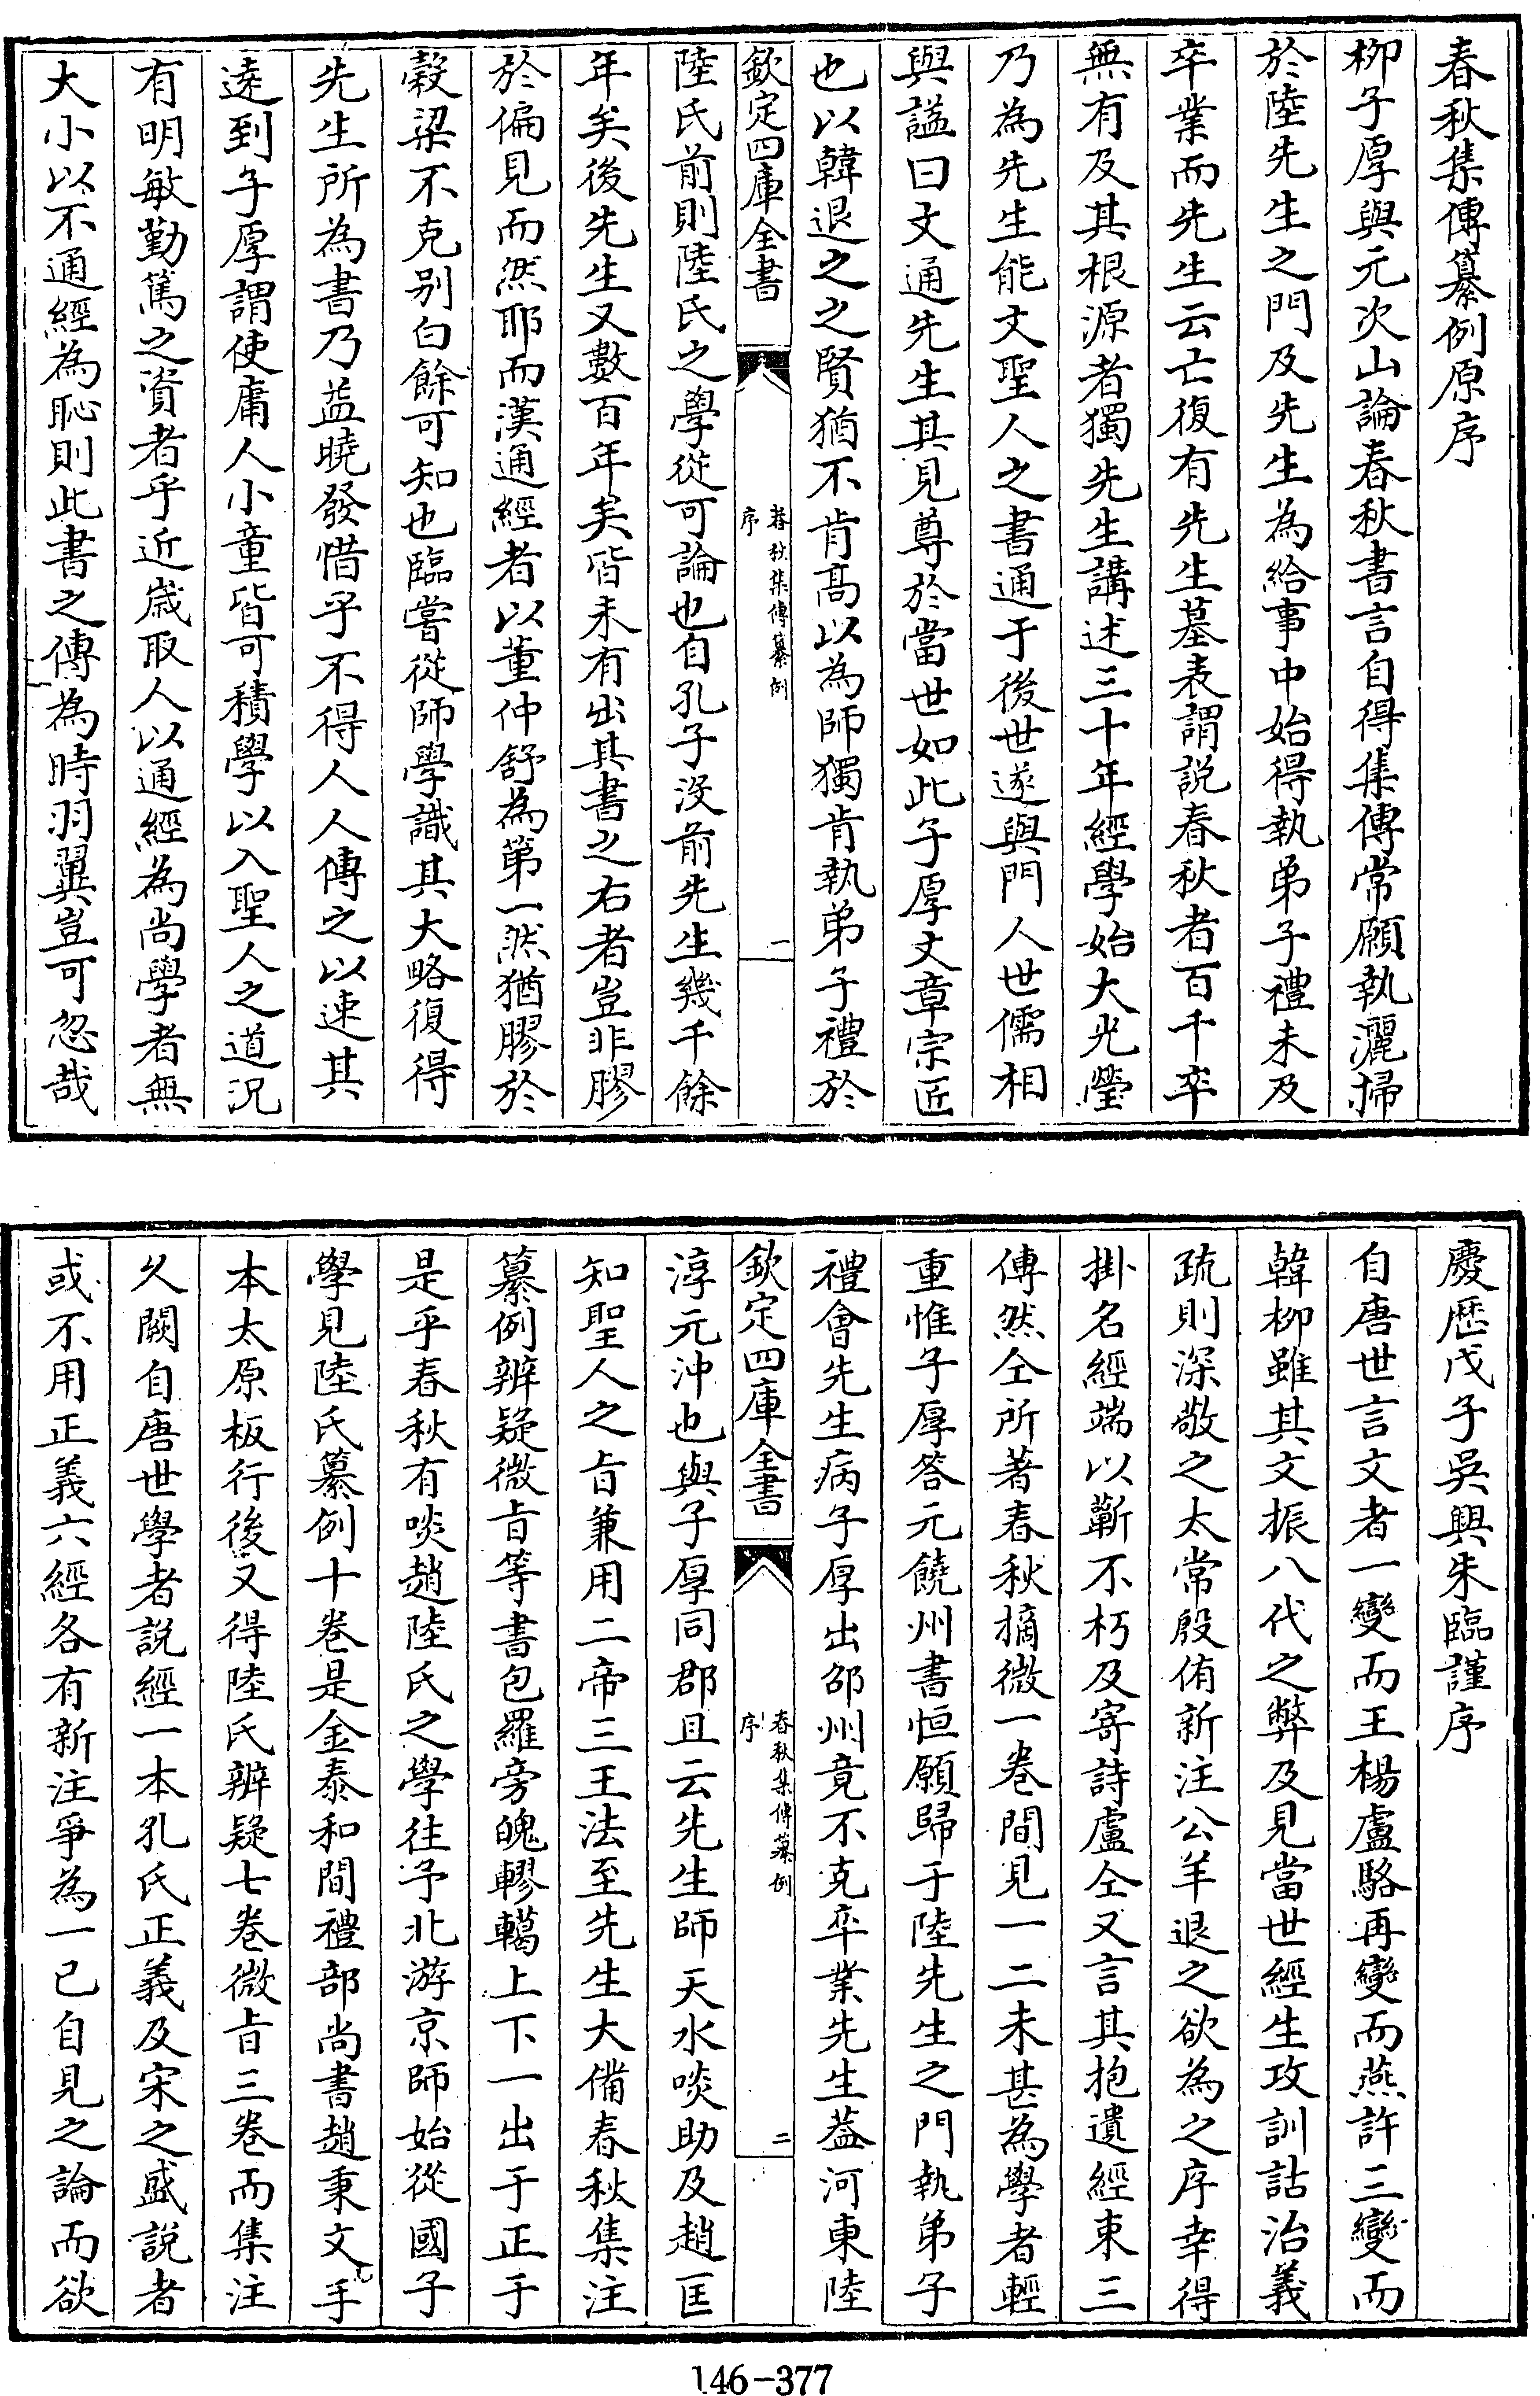 春秋集傳纂例原序
柳子厚與元次山論春秋書言自得集傳常願執灑掃
於陸先生之門及先生為給事中始得執弟子禮未及
卒業而先生云亡復有先生墓表謂説春秋者百千卒
無有及其根源者獨先生講述三十年經學始大光瑩
乃為先生能文聖人之書通于後世遂與門人世儒相
與謚曰文通先生其見尊於當世如此子厚文章宗匠
也以韓退之之賢猶不肯髙以為師獨肯執弟子禮於
欽定四庫全書
春秋集傳纂例
序
一
陸氏前則陸氏之學從可論也自孔子没前先生幾千餘
年矣後先生又數百年矣皆未有出其書之右者豈非膠
於偏見而然耶而漢通經者以董仲舒為第一然猶膠於
穀梁不克别白餘可知也臨嘗從師學識其大略復得
先生所為書乃益曉發惜乎不得人人傳之以速其
逺到子厚謂使庸人小童皆可積學以入聖人之道况
有明敏勤篤之資者乎近嵗取人以通經為尚學者無
大小以不通經為恥則此書之傳為時羽翼豈可忽哉
慶歴戊子吳興朱臨謹序
自唐世言文者一變而王楊盧駱再變而燕許三變而
韓柳雖其文振八代之弊及見當世經生攻訓詁治義
疏則深敬之太常殷侑新注公羊退之欲為之序幸得
掛名經端以蘄不朽及寄詩盧仝又言其抱遺經束三
傳然仝所著春秋摘微一卷間見一二未甚為學者輕
重惟子厚答元饒州書恒願歸于陸先生之門執弟子
禮會先生病子厚出邵州竟不克卒業先生葢河東陸
欽定四庫全書
春秋集傳纂例
序
二
淳元沖也與子厚同郡且云先生師天水啖助及趙匡
知聖人之㫖兼用二帝三王法至先生大備春秋集注
纂例辨疑微㫖等書包羅旁魄轇轕上下一出于正于
是乎春秋有啖趙陸氏之學往予北游京師始從國子
學見陸氏纂例十卷是金泰和間禮部尚書趙秉文手
本太原板行後又得陸氏辨疑七卷微㫖三卷而集注
久闕自唐世學者説經一本孔氏正義及宋之盛説者
或不用正義六經各有新注爭為一已自見之論而欲
146-377